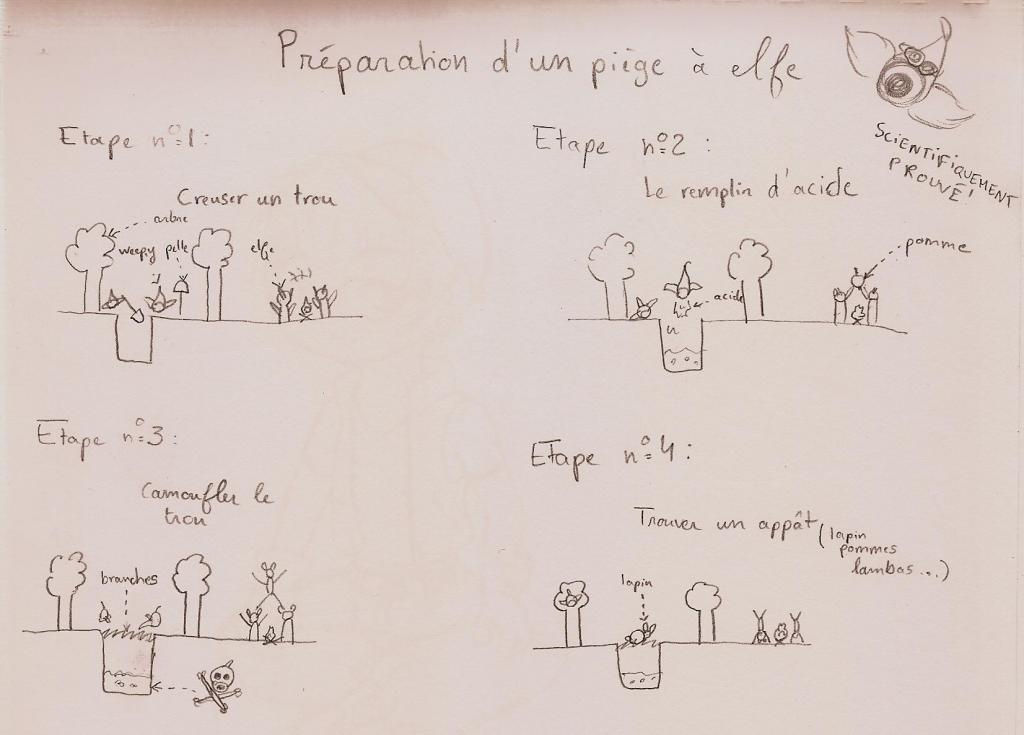 Préparation d'un piège à elfe
SCIENTIFIQUEMENT
PROUVÉ!
Etape n°1:
Creuser un trou
arbre
weepy
pelle
elfe
Etape n°2:
Le remplin d'acide
acide
pomme
Etape n°3:
Camoufler le
trou
branches
Etape n°4:
Trouver un appât (lapin
pommes
lambas...)
lapin